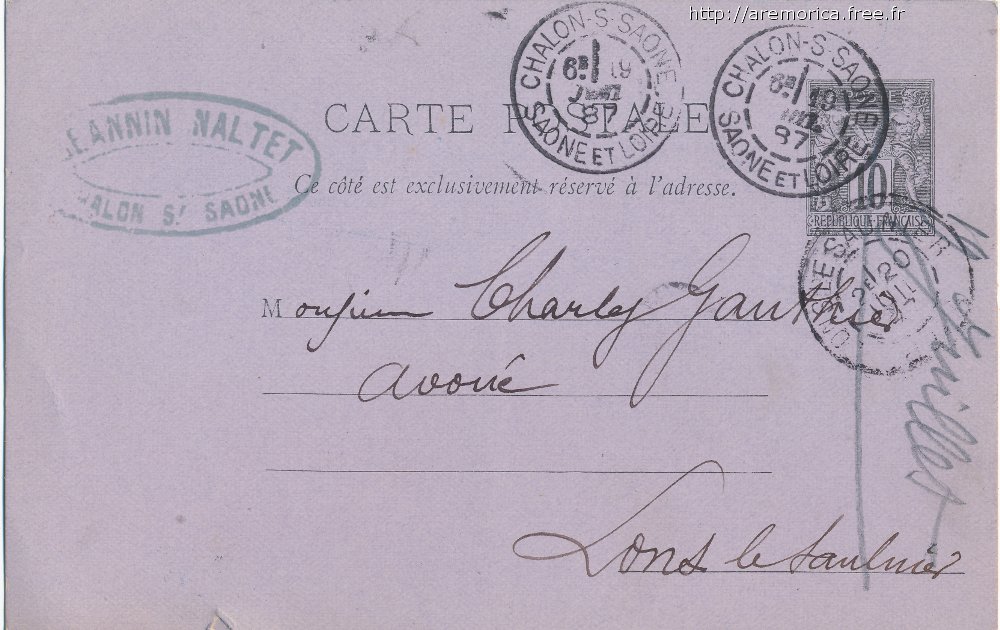 http://aremorica.free.fr
CHALON-S-SAONE
6E 19
JUIL
87
SAONE ET LOIRE
CHALON-S-SAONE
6E 19
JUIL
87
SAONE ET LOIRE
JEANNIN NALTET
CHALON St SAONE
CARTE POSTALE
Ce côté est exclusivement réservé à l'adresse.
10
REPUBLIQUE FRANÇAISE
LONS LE SAUNIER
2E 20
JUIL
Monsieur Charles Gauthier
avoué
Lons le Saulnier
juillet